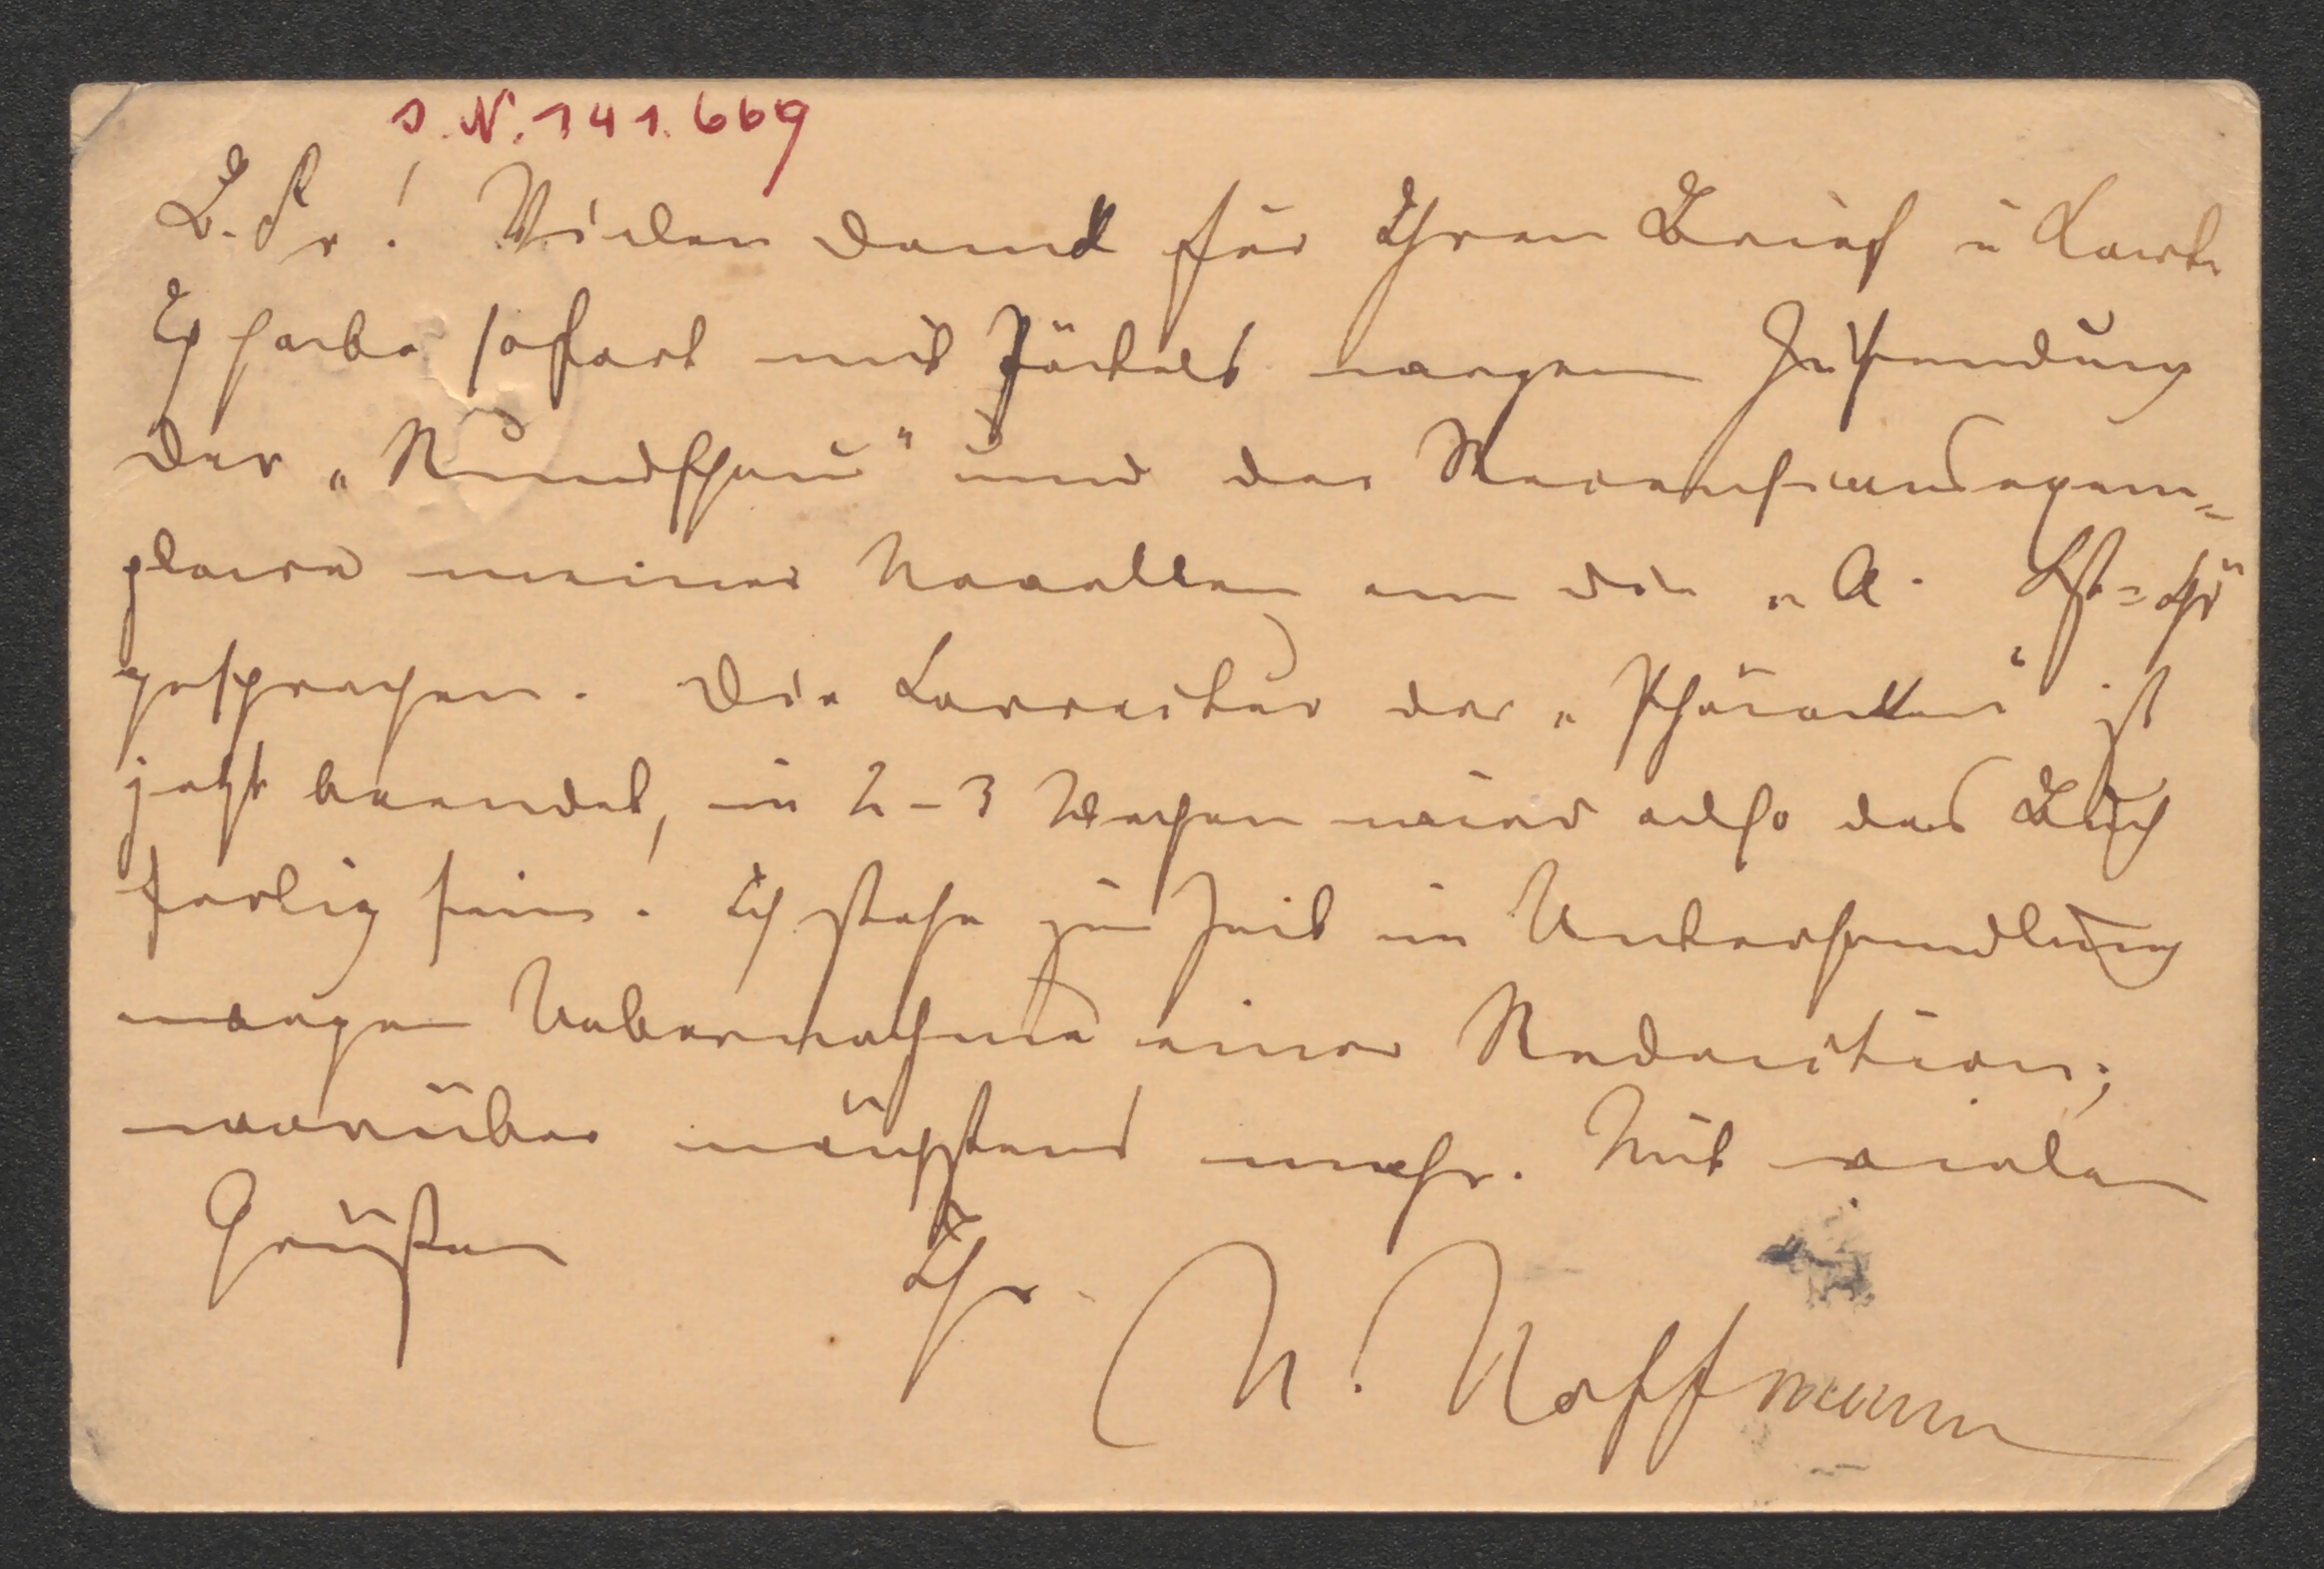 J.N. 141.669
L. Kr.! Vielen Dank für Ihren Brief u Karte
Ich habe sofort mit Jäckels wegen Zusendung
der „Rundschau“ und der Recensionsexem=
plare meiner Novellen an die „A.
gesprochen. Die Correctur der „ “ ist
jetzt beendet, in 2-3 Wochen wird also das Buch
fertig sein. Ich stehe zur Zeit in Unterhandlung
wegen Uebernahme einer Redaction;
worüber nächstens mehr. Mit vielen
Grüßen
Ihr
H. Hoffmann